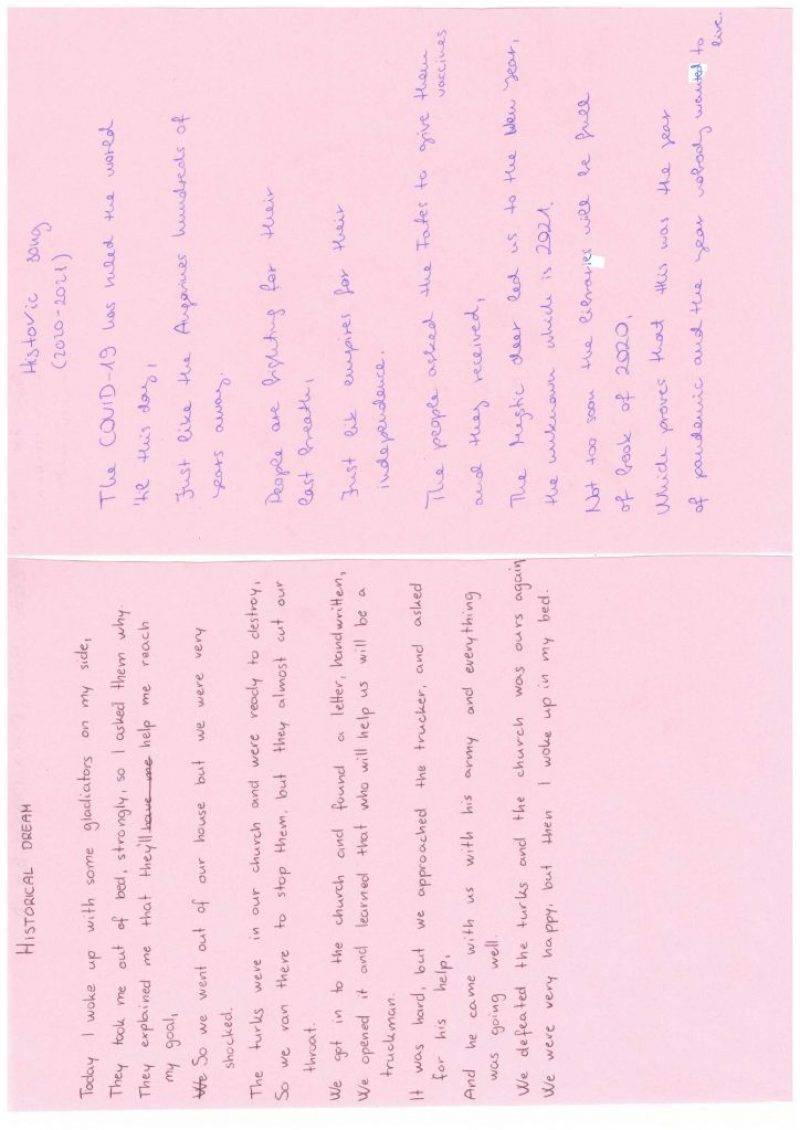 HISTORICAL DREAM
Today I woke up with some gladiators on my side,
They took me out of bed, strongly, so I asked them why.
They explained me that they'll have me help me reach
my goal,
We So we went out of our house but we were very
shocked.
The turks were in our church and were ready to destroy,
So we ran there to stop them, but they almost cut our
throat.
We got in to the church and found a letter, handwritten,
We opened it and learned that who will help us will be a
truckman.
It was hard, but we approached the trucker, and asked
for his help,
And he came with us with his army and everything
was going well.
We defeated the turks and the church was ours again
We were very happy, but then I woke up in my bed.
Historic song
(2020-2021)
The COVID-19 has ruled the world
'til this day,
Just like the hundreds of
years away.
People are fighting for their
last breath,
Just lik empires for their
independence.
The people asked the Fates to give them
vaccines
and they received,
The Mystic deer led us to the New Year,
the unknown which is 2021.
Not too soon the libraries will be full
of book of 2020,
Which proves that this was the year
of pandemic and the year nobody wanted to
live.